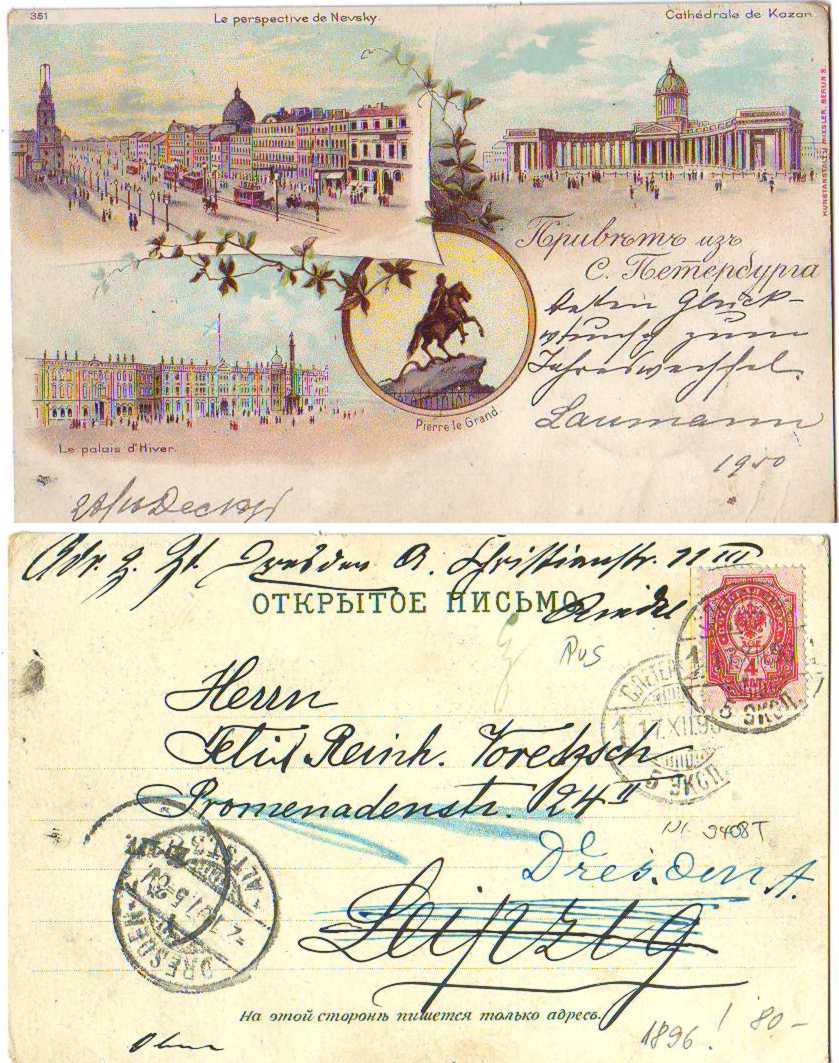 351
Le perspective de Nevsky.
Cathédrale de Kazan.
KUNSTANSTALT J. MIESLER, BERLIN S.
Привѣтъ изъ
С. Петербурга
Glück-
wunsch zum
Jahreswechsel.
Laumann
1900
Pierre le Grand.
Le palais d'Hiver.
Adr. z. Zt. Dresden A. Christianstr. 11 III
ОТКРЫТОЕ ПИСЬМО.
Rus
Herrn
Felix Reinh. Voretzsch
Promenadenstr. 24 II
Dresden A.
Leipzig
4
5 ЭКСП.
1 17.XII.9
5 ЭКСП.
DRESDEN-
ALTST.
На этой сторонѣ пишется только адресъ.
1896! 80-